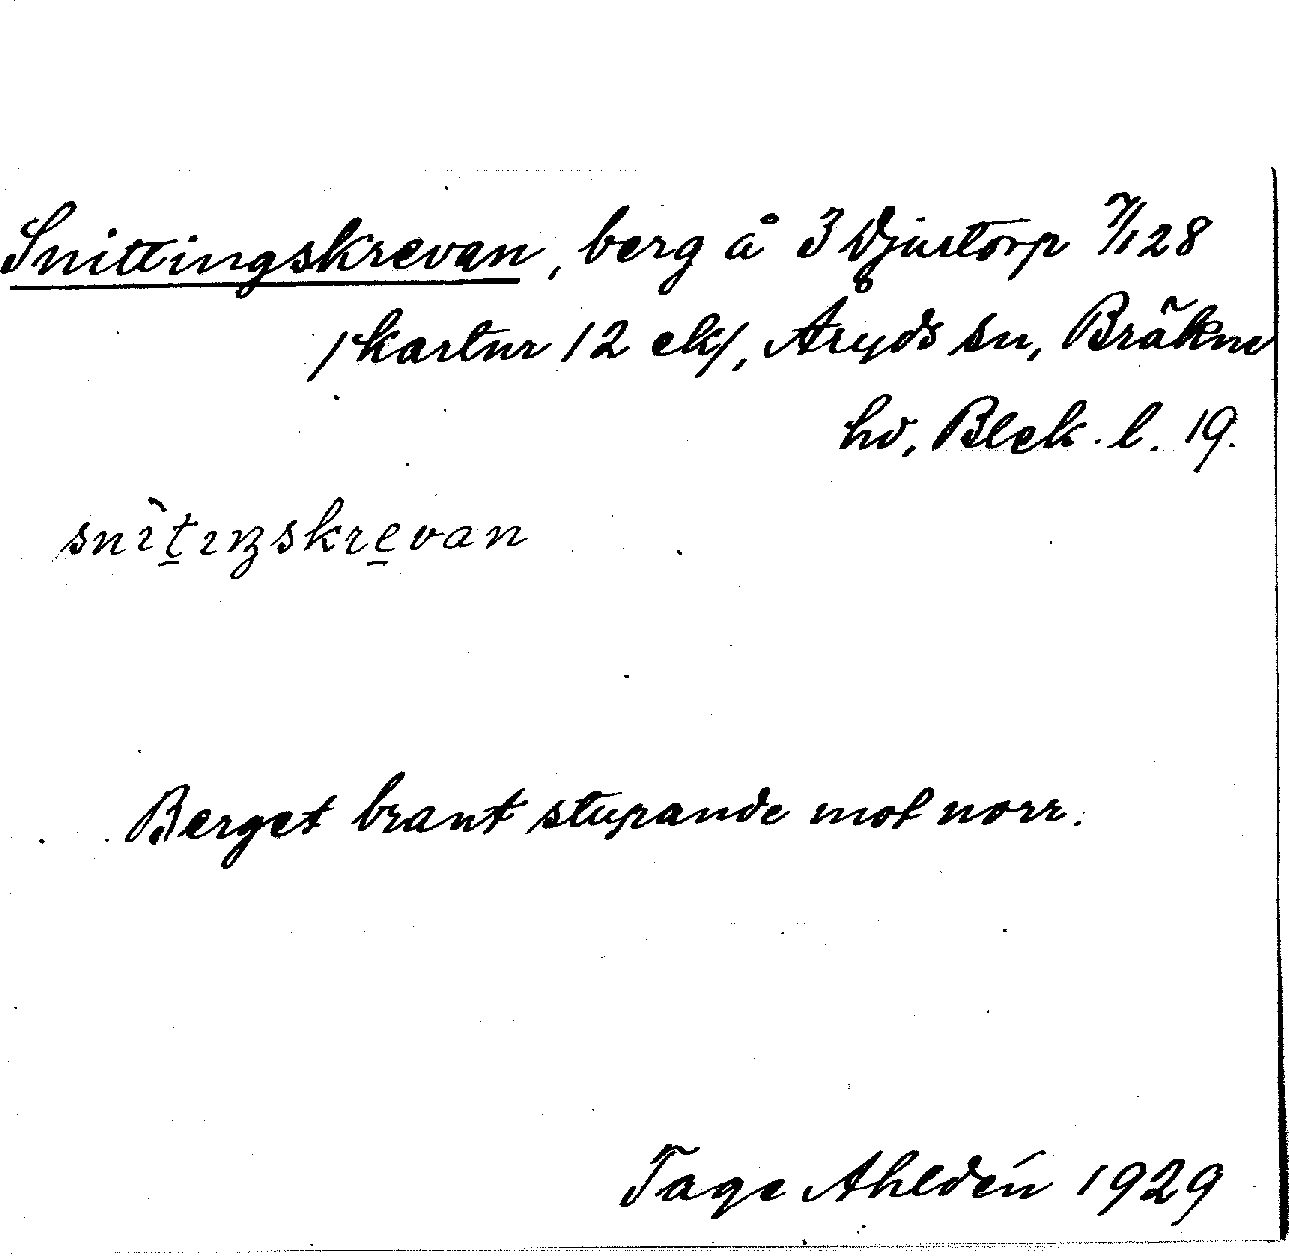 Snittingskrevan, berg å 3 Djurtorp 7/1 28
/kartnr 12 ek/, Åryds sn, Bräkne
hd, Blek. l. 19.
snìt̲ɩŋskre̲van
Berget brant stupande mot norr.
Tage Ahldén 1929